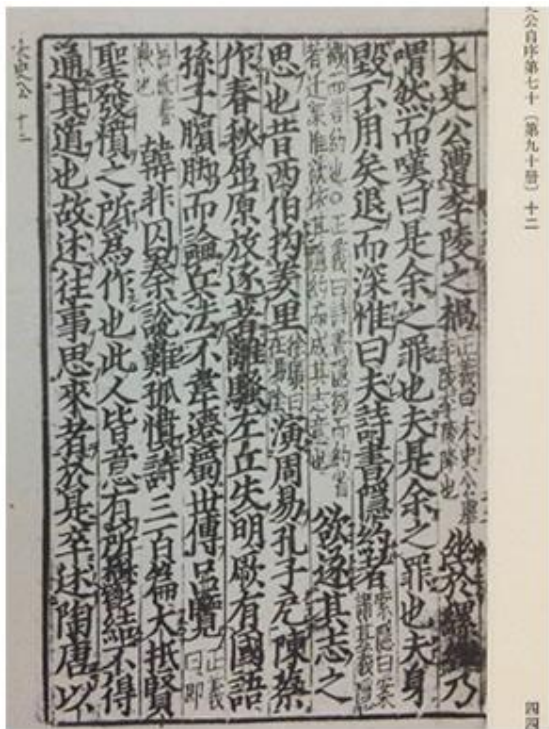 史公自序第七十〔第九十册〕十二
四四
太史公遭李陵之禍正義曰太史公舉李陵李陵降也幽於縲紲乃
喟然而嘆曰是余之罪也夫是余之罪也夫身
毀不用矣退而深惟曰夫詩書隱約者索隱曰案謂其義隱
微而言約也○正義曰詩書隱微而約省者迁深惟欲依其隱約而成其志意也欲遂其志之
思也昔西伯拘羑里徐廣曰在湯陰演周易孔子戹陳蔡
作春秋屈原放逐著離騷左丘失明厥有國語
孫子臏脚而論兵法不韋遷蜀世傳呂覽正義曰即
韓非囚秦說難孤憤詩三百篇大抵賢
聖發憤之所爲作也此人皆意有所鬱結不得
通其道也故述往事思來者於是卒述陶唐以
太史公 十二